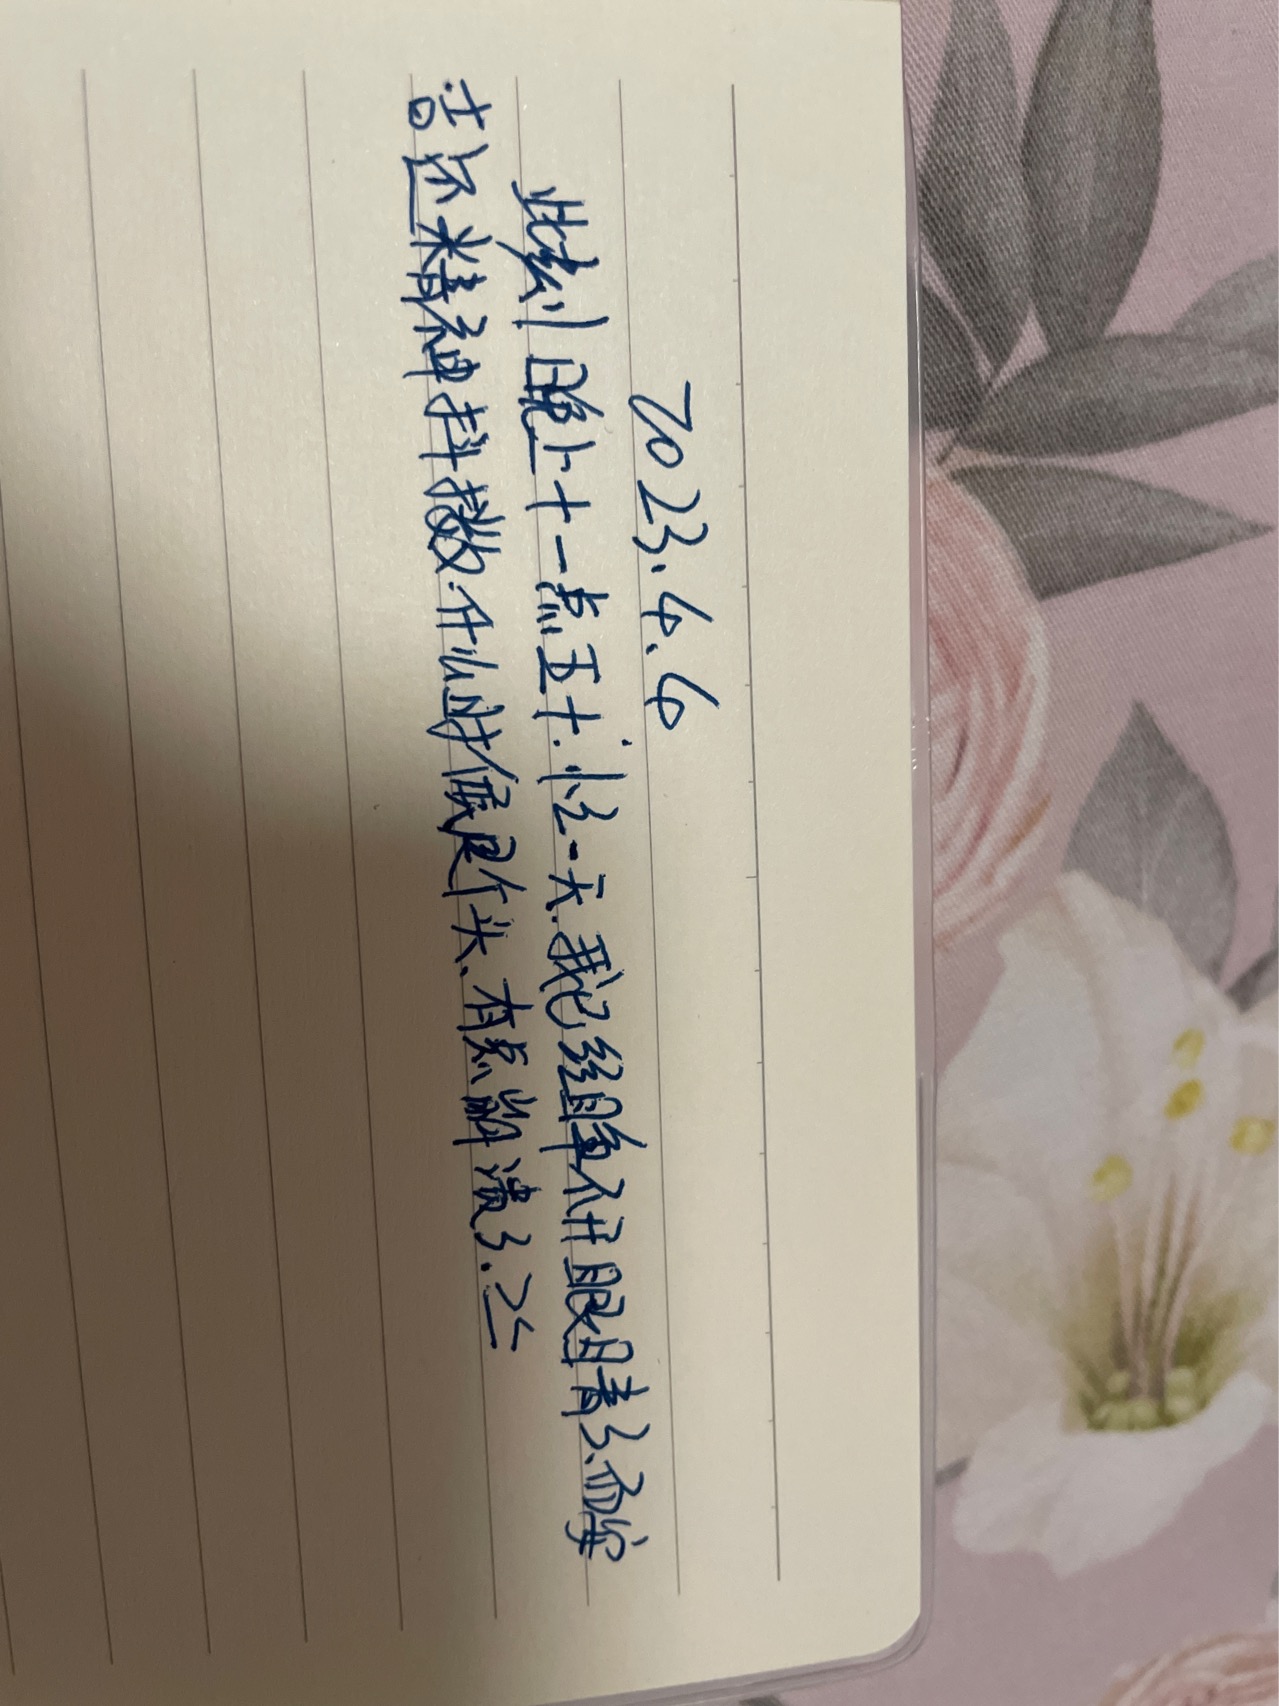 2023.4.6
此刻晚上十一点五十.忙一天.我已经睁不开眼睛了、而
吉还精神抖擞.什么时候是个头、有点崩溃了.